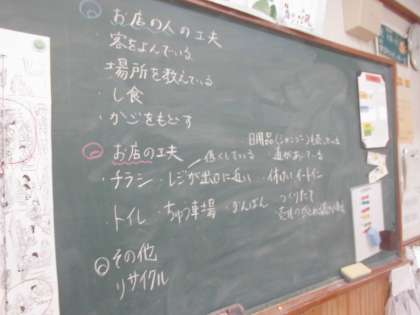 お店の人の工夫
・客をよんでいる
場所を教えている
・し食
・かごをもどす
お店の工夫
日用品(シャンプー)も売っている
低くしている
道があいている
・チラシ・レジが出口に近い・休けい イートイン
トイレ・ちゅう車場・かんばん
つくりたて
その他
リサイクル